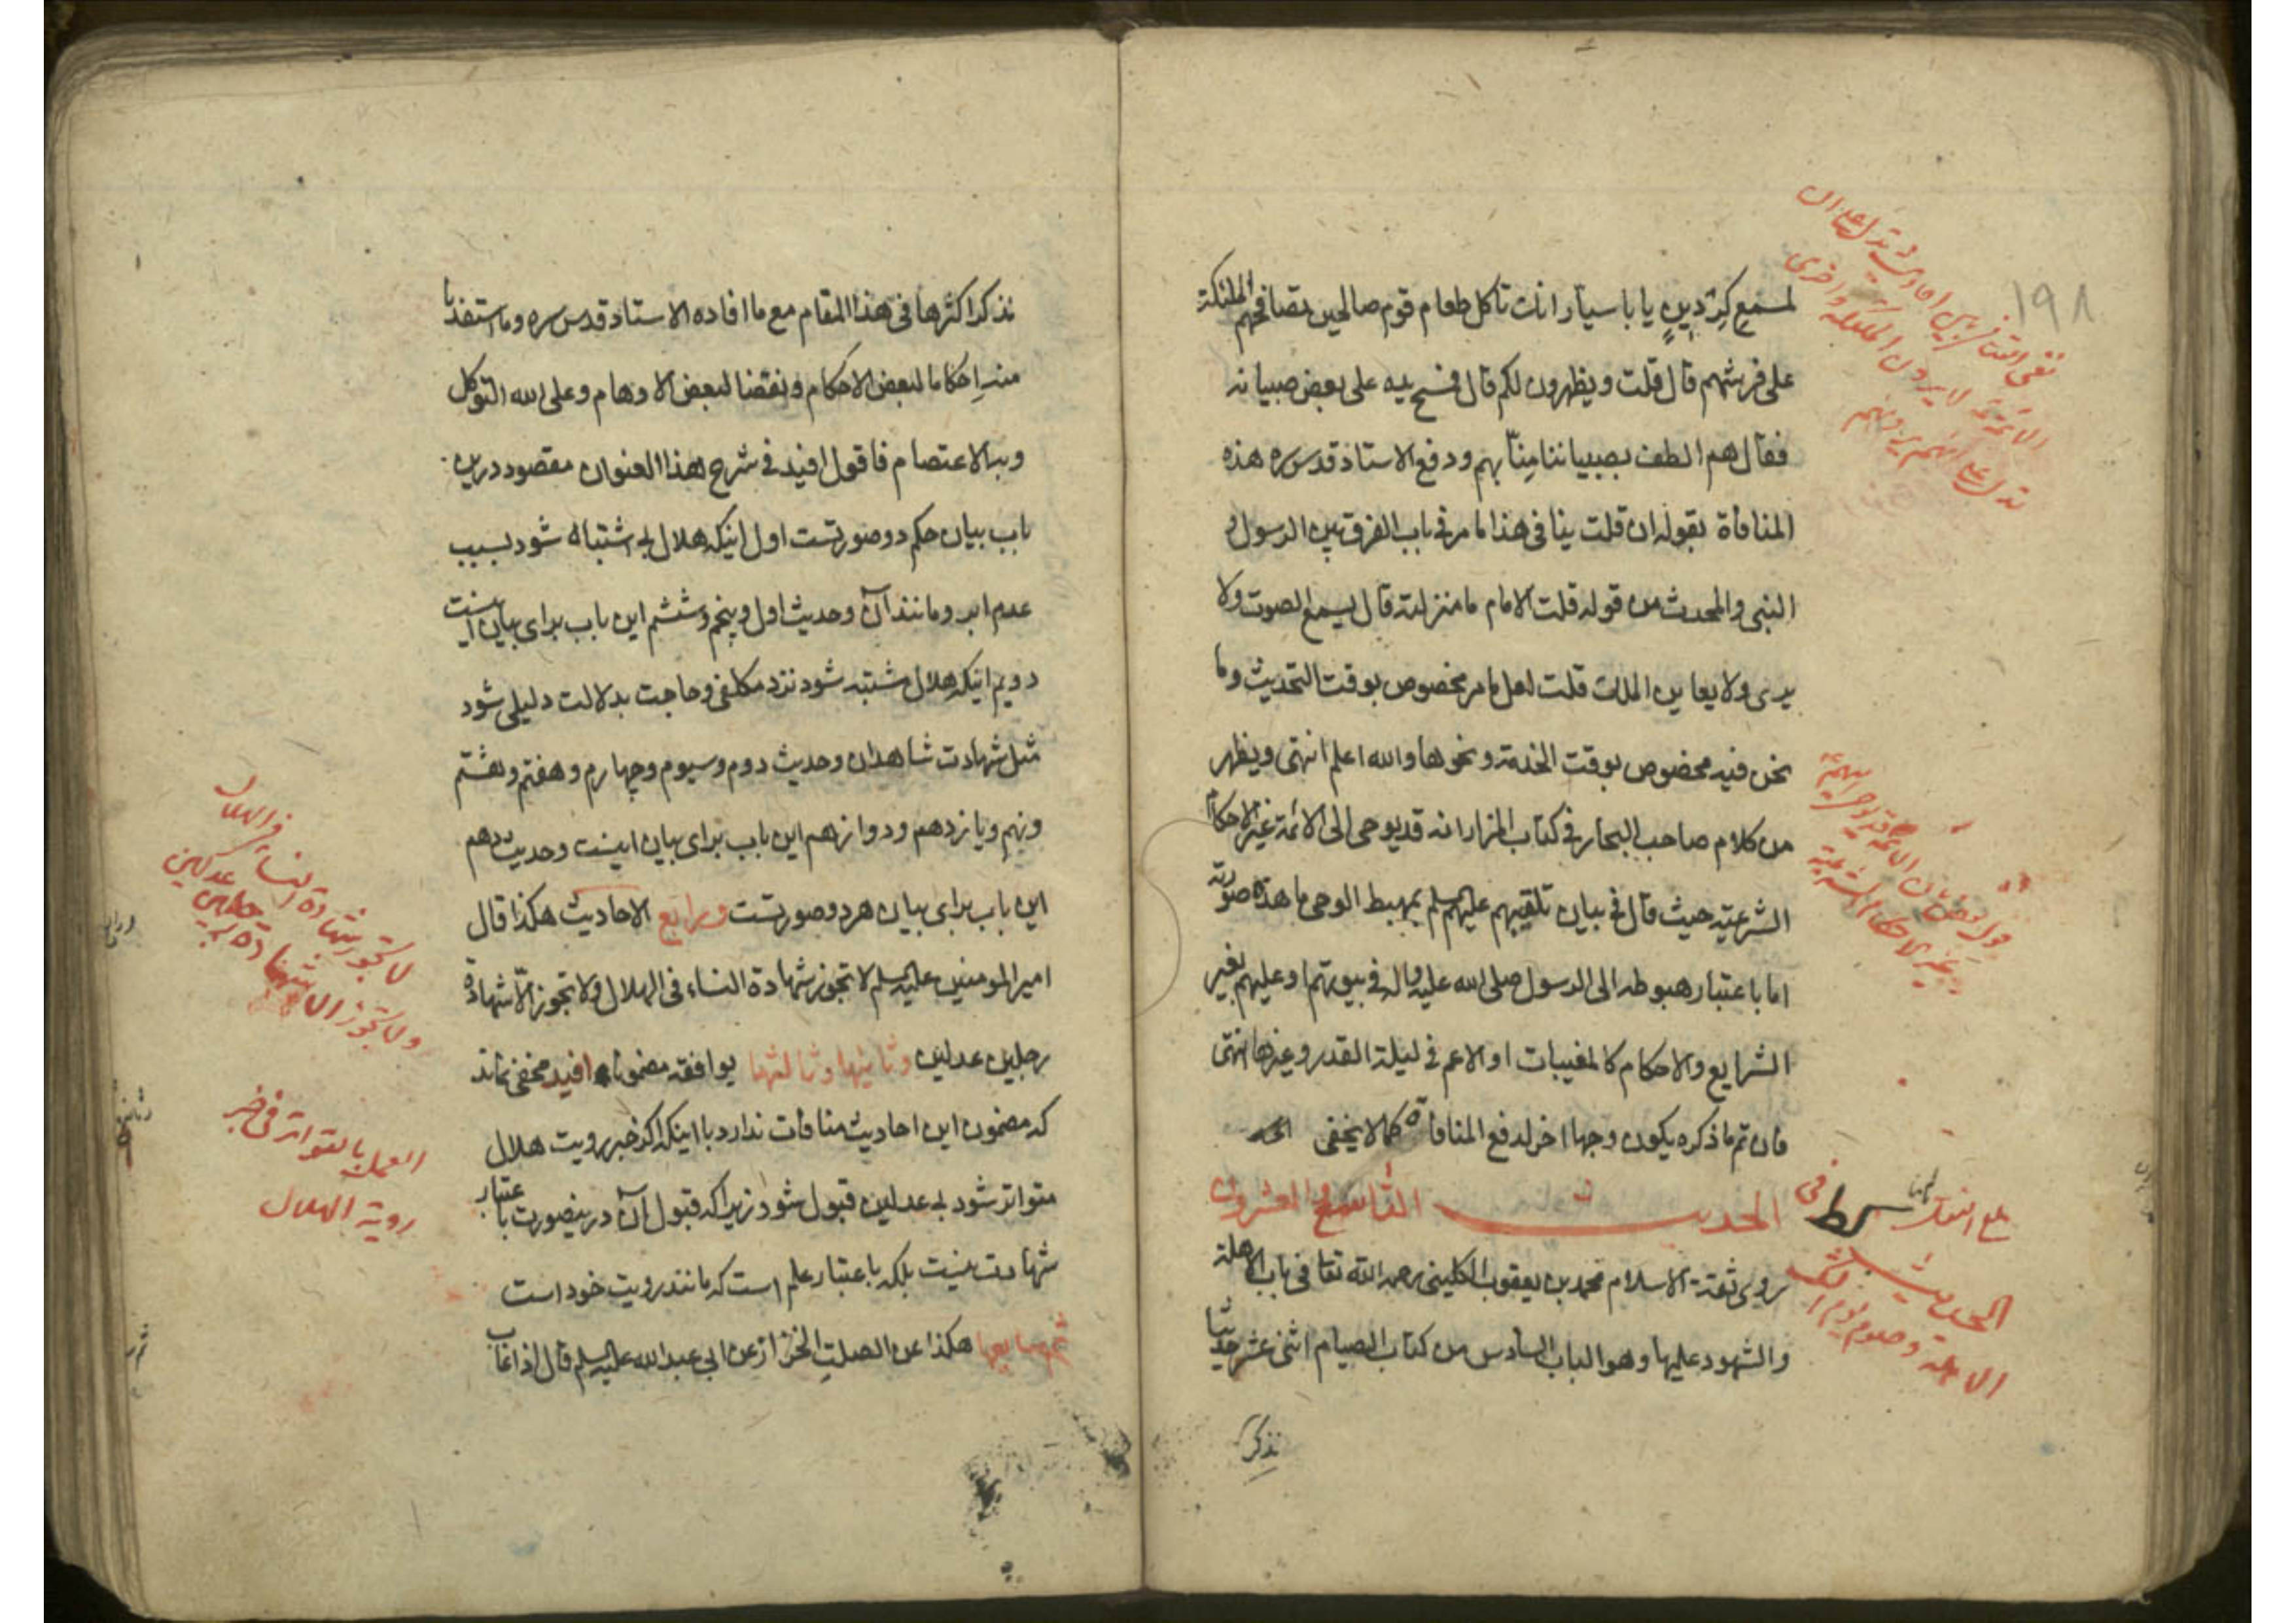 ١٩٨
لمسمع كردين يا با سيار انت تاكل طعام قوم صالحين تصافحهم الملئكة
على فرشهم قال قلت ويظهرون لكم قال فمسح يده على بعض صبيانه
فقال هم الطف بصبياننا منّا بهم ودفع الاستاد قدس سره هذه
المنافاة بقوله ان قلت ينافى هذا ما مر فى باب الفرق بين الرسول و
النبى والمحدث من قوله قلت الامام ما منزلته قال يسمع الصوت ولا
يرى ولا يعاين الملك قلت لعل ما مر مخصوص بوقت التحديث وما
نحن فيه مخصوص بوقت الخدمة ونحوها والله اعلم انتهى ويظهر
من كلام صاحب البحار فى كتاب المزار انه قد يوحى الى الائمة غير الاحكام
الشرعية حيث قال فى بيان تلقيبهم عليهم السلم بمهبط الوحى ما هذه صورته
اما باعتبار هبوطه الى الرسول صلى الله عليه واله فى بيوتهم او عليهم بغير
الشرايع والاحكام كالمغيبات او الاعم فى ليلة القدر وغيرها انتهى
فان تم ما ذكره يكون وجها اخر لدفع المنافاة كما لا يخفى
الحديث التاسع والعشرون
روى ثقة الاسلام محمد بن يعقوب الكلينى رحمه الله تعا فى باب الاهلة
والشهود عليها وهو الباب السادس من كتاب الصيام اثنى عشر حديثا
نذكر
الاهلة وصوم يوم الشك
نذكر اكثرها فى هذا المقام مع ما افاده الاستاد قدس سره وما استفدنا
منه احكاما لبعض الاحكام ونقضا لبعض الاوهام وعلى الله التوكل
وبه الاعتصام فاقول افيد فى شرح هذا العنوان مقصود درين
باب بيان حكم دو صورتست اول اينكه هلال بى اشتباه شود بسبب
عدم ابر ومانند آن وحديث اول وپنجم وششم اين باب براى بيان اينست
دويم اينكه هلال مشتبه شود نزد مكلفى وحاجت بدلالت دليلى شود
مثل شهادت شاهدان وحديث دوم وسيوم وچهارم وهفتم وهشتم
ونهم ويازدهم ودوازدهم اين باب براى بيان اينست وحديث دهم
اين باب براى بيان هر دو صورتست ورابع الاحاديث هكذا قال
امير المومنين عليه السلم لا تجوز شهادة النساء فى الهلال ولا تجوز الّا شهادة
رجلين عدلين وثانيها وثالثها يوافقه مضمونا افيد مخفى نماند
كه مضمون اين احاديث منافات ندارد با اينكه اكر خبر رويت هلال
متواتر شود بى عدلين قبول شود زيرا كه قبول آن درينصورت باعتبار
شهادت نيست بلكه باعتبار علم است كه مانند رويت خود است
وسابعها هكذا عن الصلت الخزاز عن ابى عبد الله عليه السلم قال اذا غاب
لا تجوز شهادة النساء فى الهلال
ولا تجوز الا شهادة رجلين عدلين
العمل بالتواتر فى خبر
روية الهلال